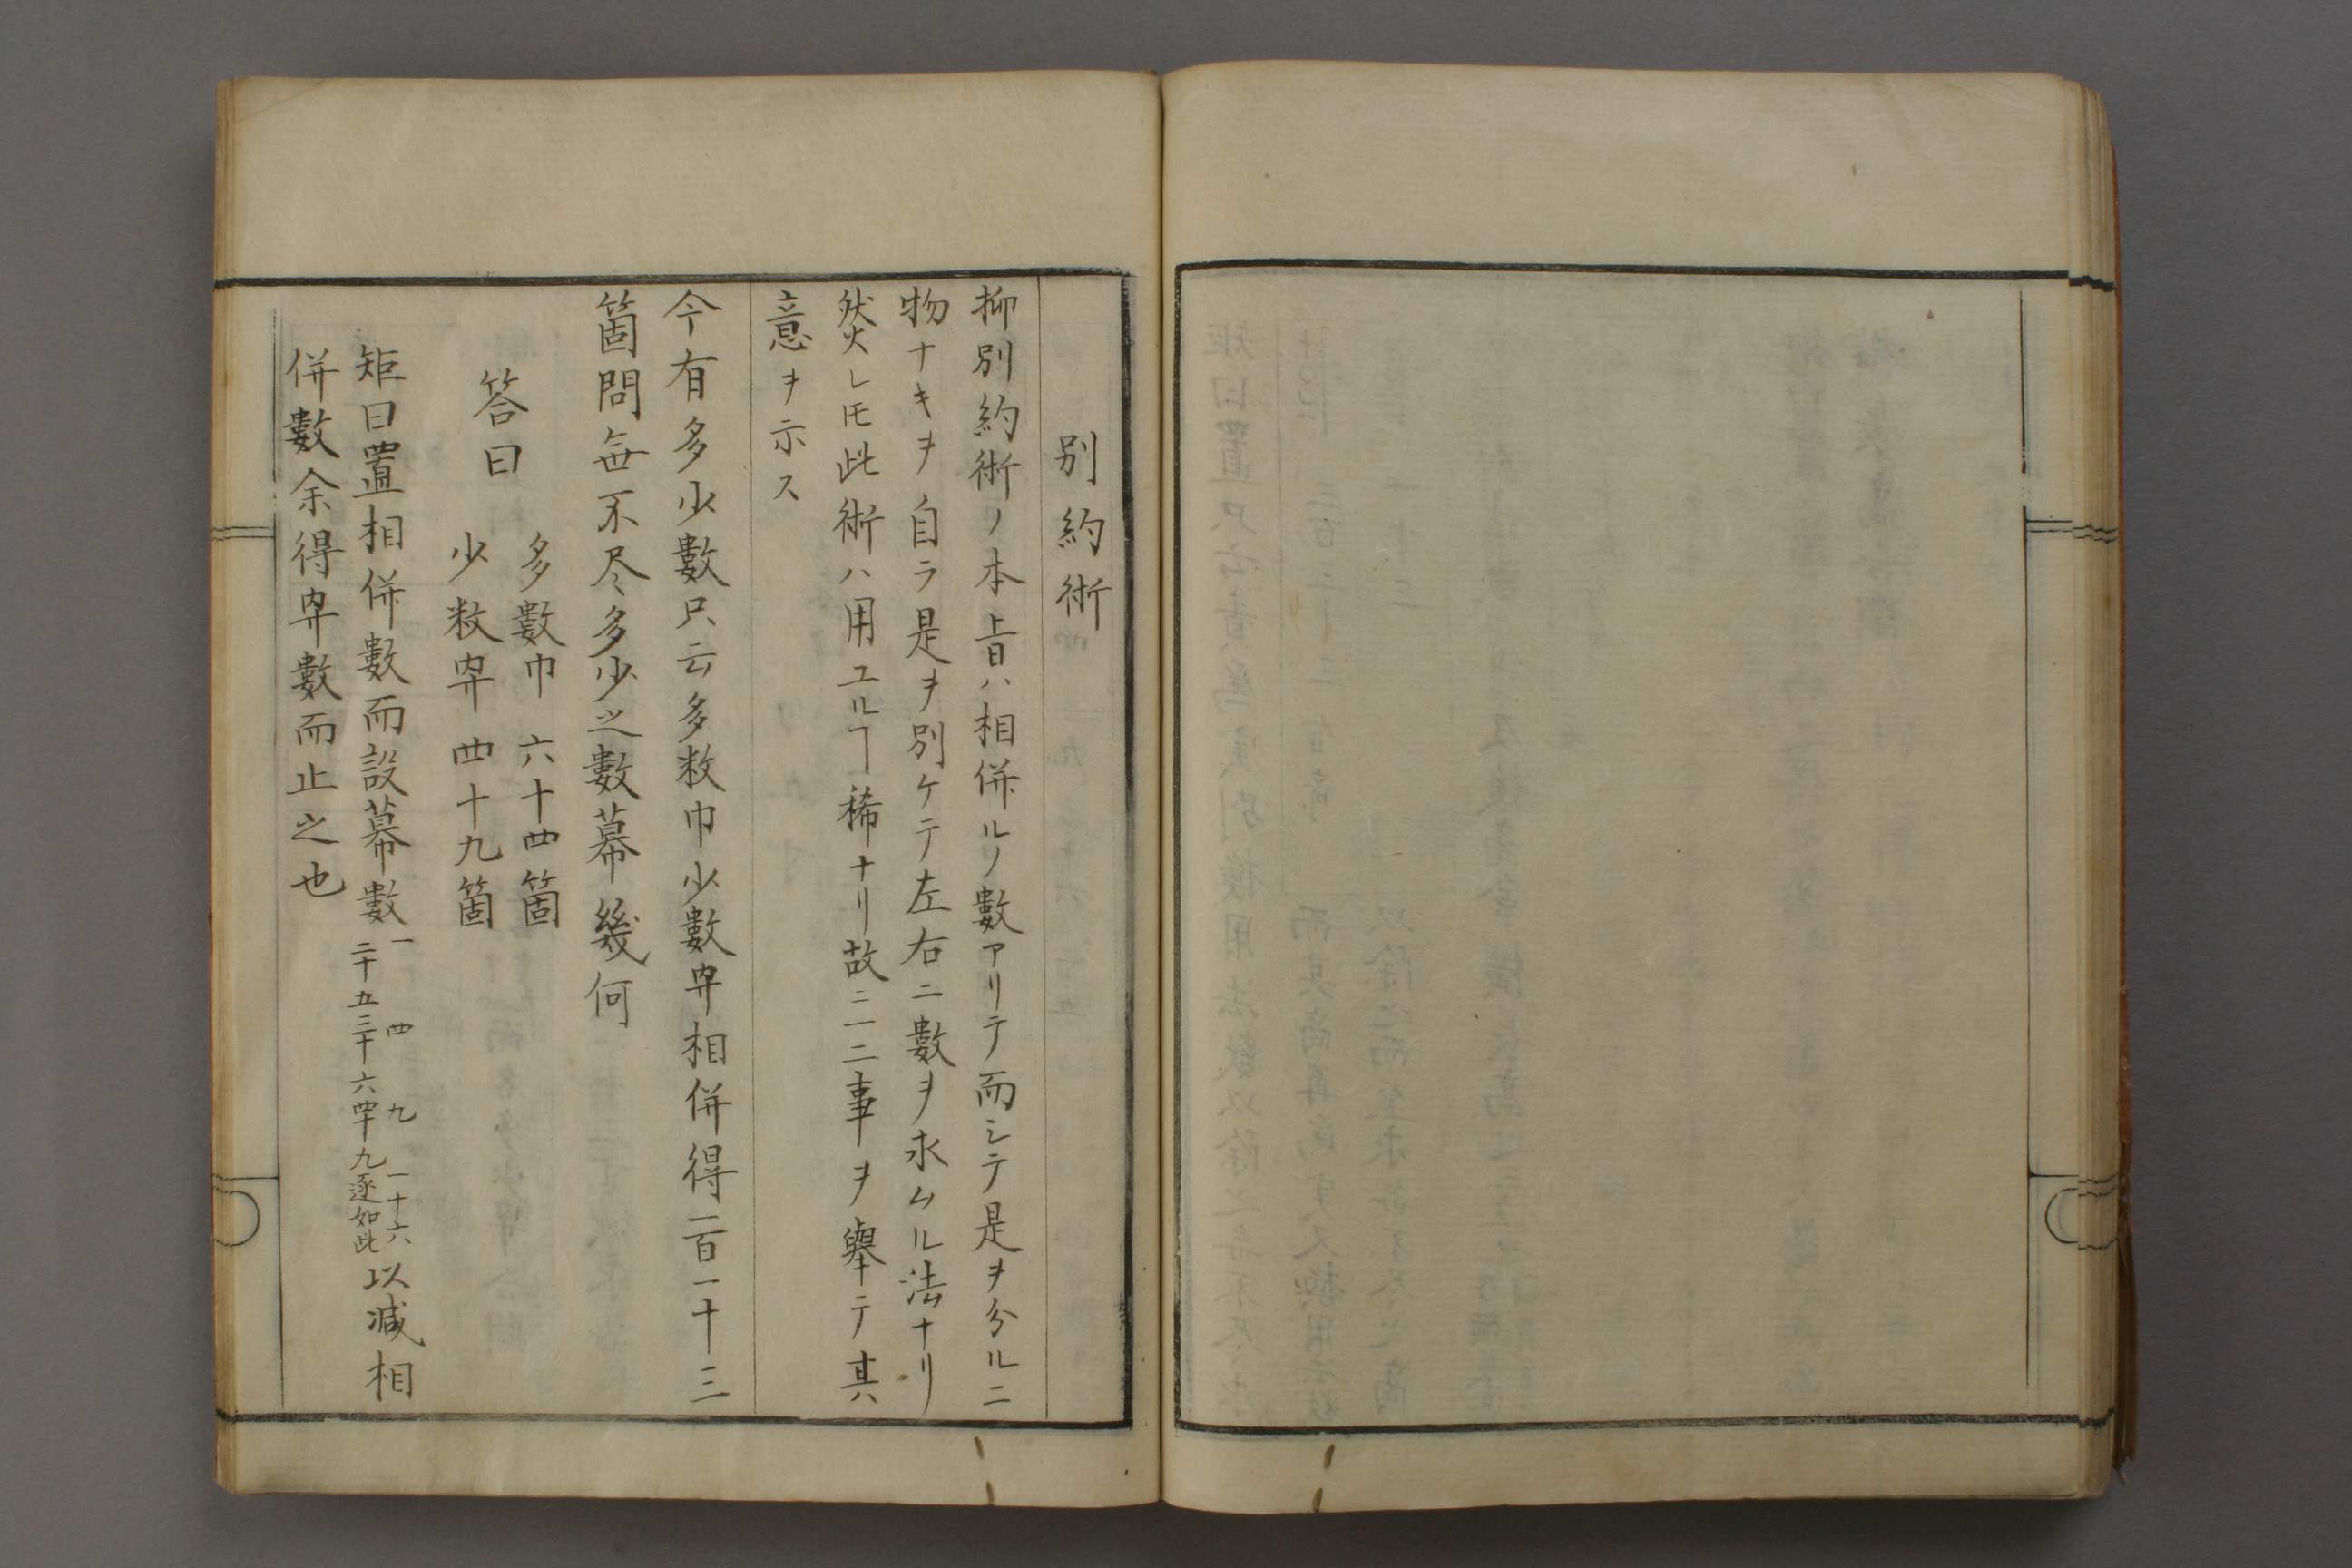 別約術
抑別約術ノ本旨ハ相併ルノ數アリテ而シテ是ヲ分ルニ
物ナキヲ自ラ是ヲ別ケテ左右ニ數ヲ求ムル法ナリ
然レ𪜈此術ハ用エルヿ稀ナリ故ニ一二事ヲ擧テ其
意ヲ示ス
今有多少數只云多数巾少數㝈相併得一百一十三
箇問每不尽多少之數幕幾何
答曰
多數巾 六十四箇
少数 四十九箇
矩曰置相併數而設幕數
一 四 九 一十六
二十五三十六四十九逐如此
以減相
併數余得數而止之也